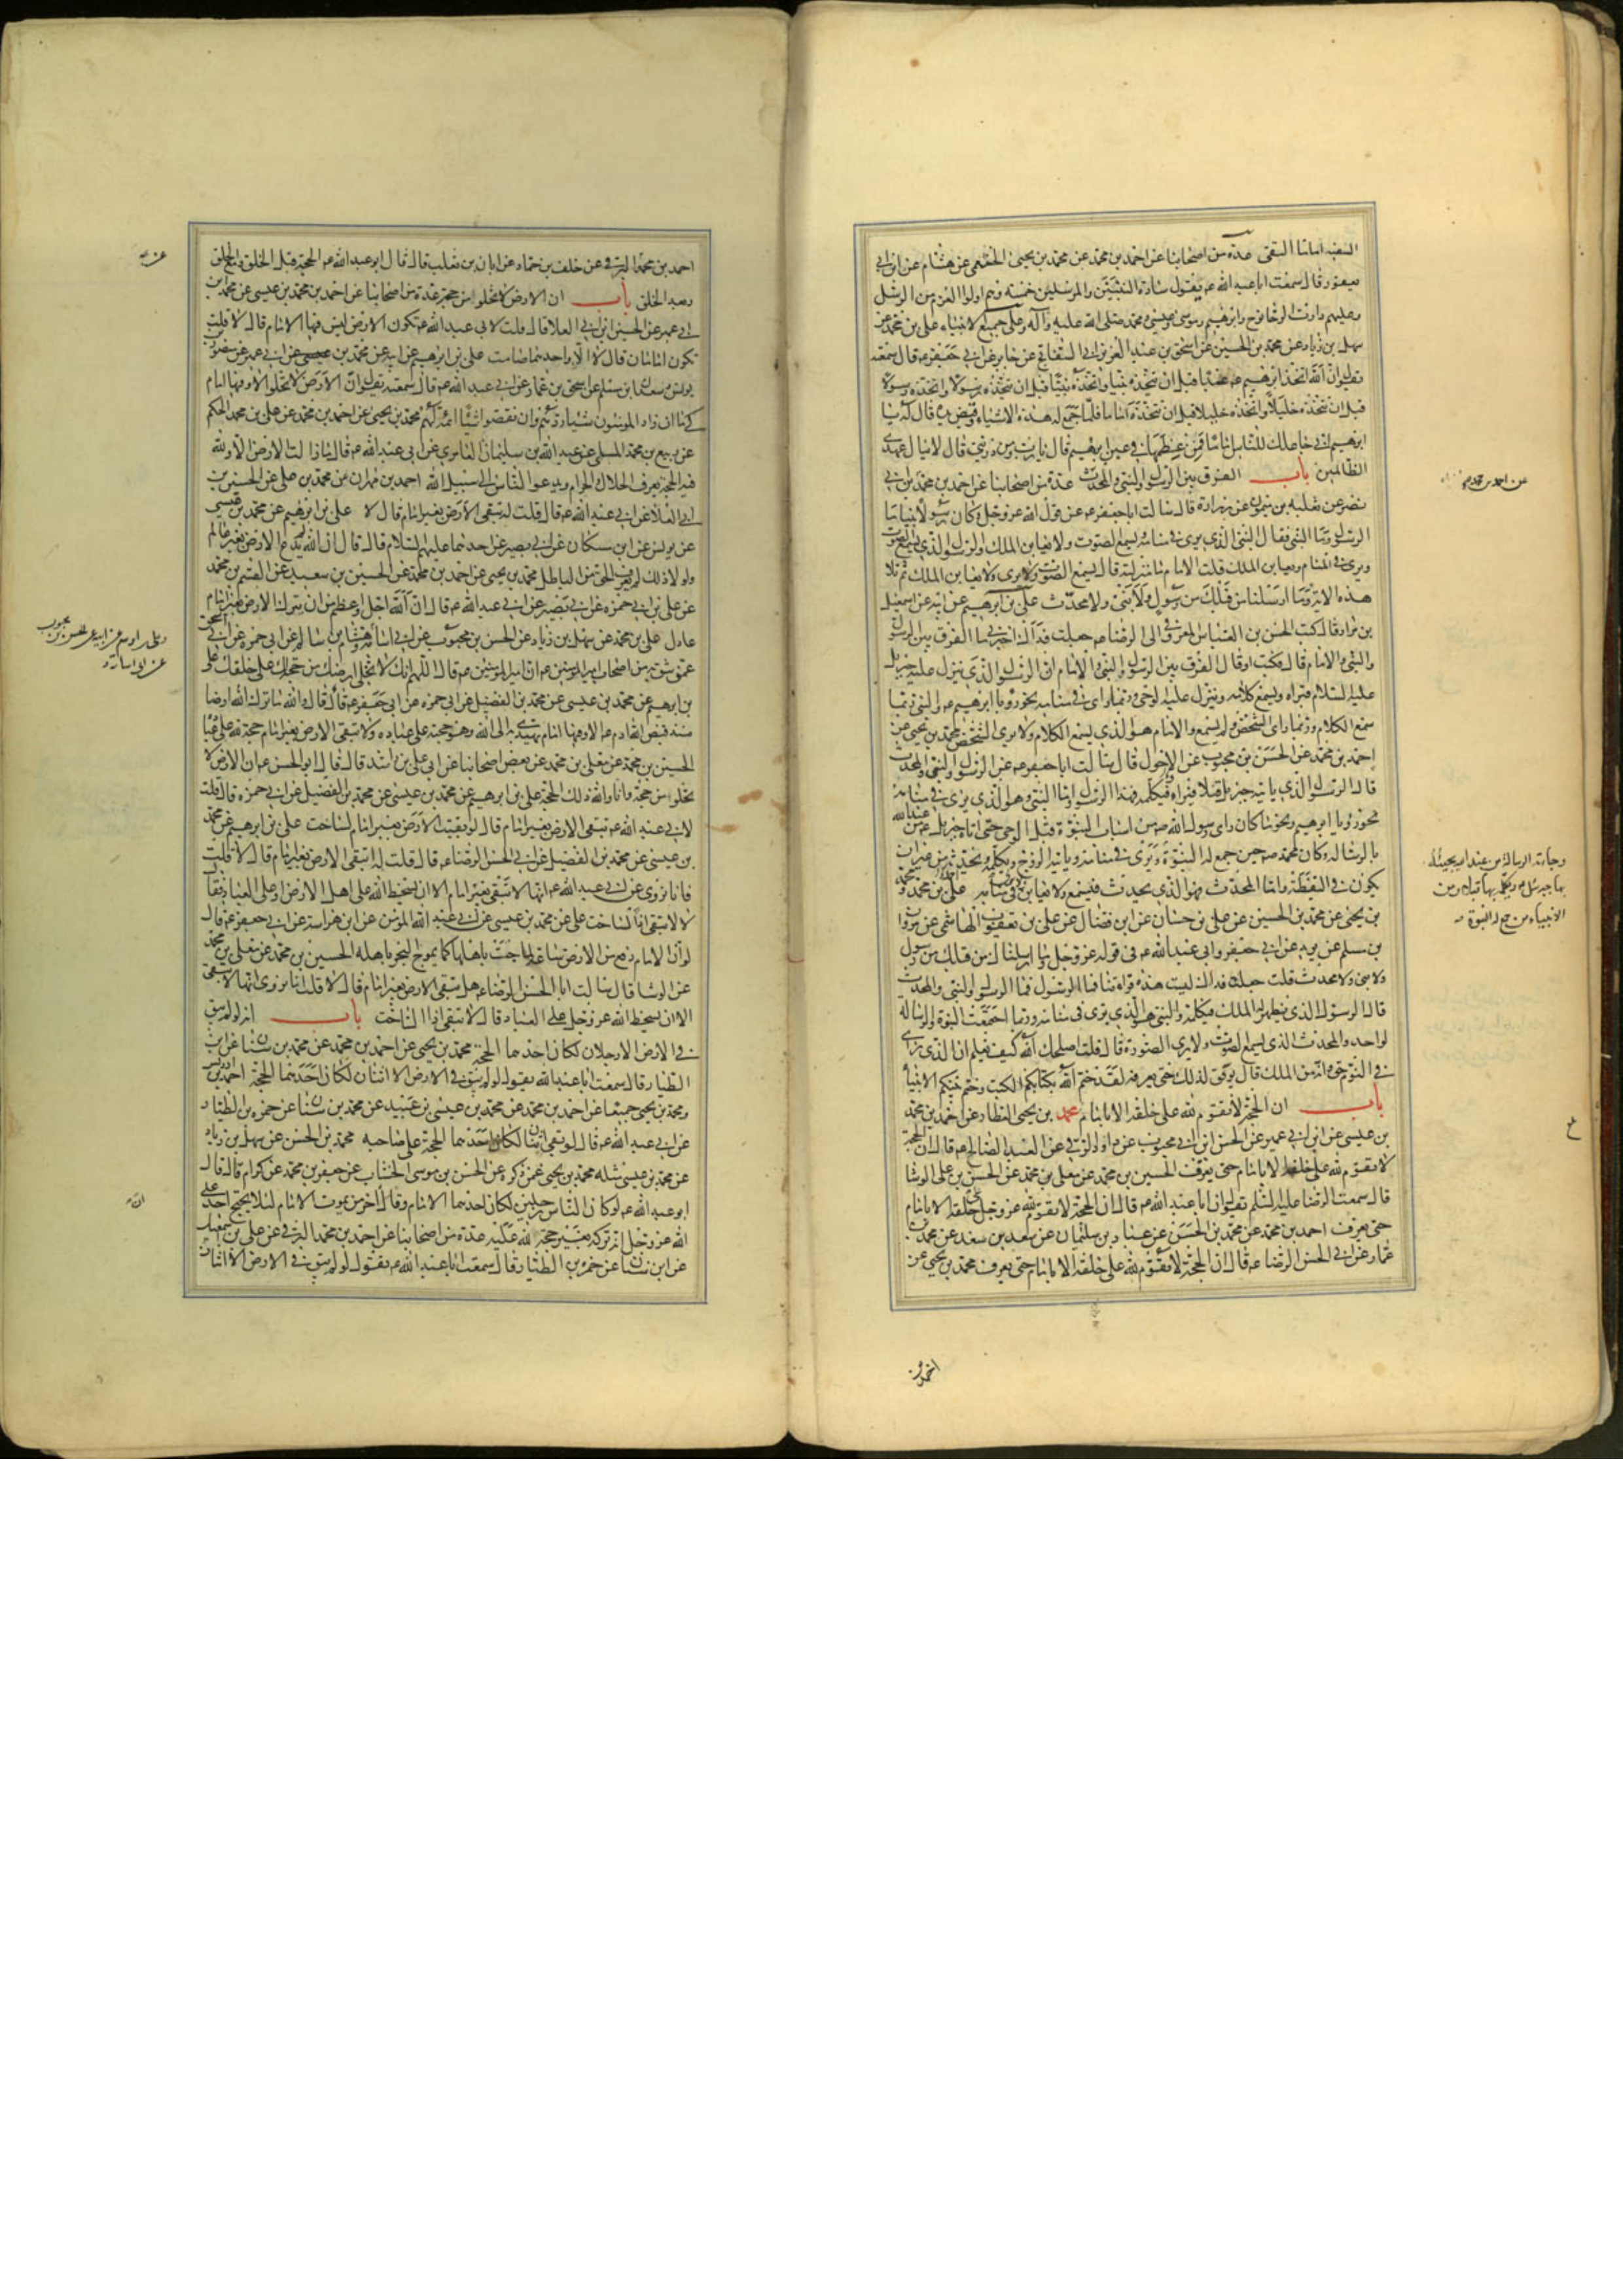 السفيه امام التقى عدة من اصحابنا عن احمد بن محمد عن محمد بن يحيى الخثعمى عن هشام عن ابن ابى
يعفور قال سمعت ابا عبد الله ع يقول سادة النبيين والمرسلين خمسة وهم اولوا العزم من الرسل
وعليهم دارت الرحا نوح وابرهيم وموسى وعيسى ومحمد صلى الله عليه وآله وعلى جميع الانبياء على بن محمد عن
سهل بن زياد عن محمد بن الحسين عن اسحق بن عبد العزيز ابى السفاتج عن جابر عن ابى جعفر ع قال سمعته
يقول ان الله اتخذ ابرهيم ع عبدا قبل ان يتخذه نبيا واتخذه نبيا قبل ان يتخذه رسولا واتخذه رسولا
قبل ان يتخذه خليلا واتخذه خليلا قبل ان يتخذه اماما فلما جمع له هذه الاشياء وقبض يده قال له يا
ابرهيم انى جاعلك للناس اماما فمن عظمها فى عين ابرهيم قال يا رب ومن ذريتى قال لا ينال عهدى
الظالمين باب الفرق بين الرسول والنبى والمحدث عدة من اصحابنا عن احمد بن محمد بن ابى
نصر عن ثعلبه بن ميمون عن زرارة قال سالت ابا جعفر ع عن قول الله عز وجل وكان رسولا نبيا ما
الرسول وما النبى فقال النبى الذى يرى فى منامه ويسمع الصوت ولا يعاين الملك والرسول الذى يسمع الصوت
ويرى فى المنام ويعاين الملك قلت الامام ما منزلته قال يسمع الصوت ولا يرى ولا يعاين الملك ثم تلا
هذه الاية وما ارسلنا من قبلك من رسول ولا نبى ولا محدث على بن ابرهيم عن ابيه عن اسمعيل
بن مرار قال كتب الحسن بن العباس المعروفى الى الرضا ع جعلت فداك اخبرنى ما الفرق بين الرسول
والنبى والامام قال فكتب او قال الفرق بين الرسول والنبى والامام ان الرسول الذى ينزل عليه جبرئيل
عليه السلام فيراه ويسمع كلامه وينزل عليه الوحى وربما راى فى منامه نحو رؤيا ابرهيم ع والنبى ربما
سمع الكلام وربما راى الشخص ولم يسمع والامام هو الذى يسمع الكلام ولا يرى الشخص محمد بن يحيى عن
احمد بن محمد عن الحسن بن محبوب عن الاحول قال سالت ابا جعفر ع عن الرسول والنبى والمحدث
قال الرسول الذى ياتيه جبرئيل قبلا فيراه ويكلمه فهذا الرسول واما النبى فهو الذى يرى فى منامه
نحو رؤيا ابرهيم ونحو ما كان راى رسول الله ص من اسباب النبوة قبل الوحى حتى اتاه جبرئيل ع من عند الله
بالرسالة وكان محمد ص حين جمع له النبوة ويرى فى منامه وياتيه الروح ويكلمه ويحدثه من غير ان
يكون يرى فى اليقظة واما المحدث فهو الذى يحدث فيسمع ولا يعاين ولا يرى فى منامه احمد بن محمد ومحمد
بن يحيى عن محمد بن الحسين عن على بن حسان عن ابن فضال عن على بن يعقوب الهاشمى عن مروان
بن مسلم عن بريد عن ابى جعفر وابى عبد الله ع فى قوله عز وجل وما ارسلنا من قبلك من رسول
ولا نبى ولا محدث قلت جعلت فداك ليست هذه قراءتنا فما الرسول والنبى والمحدث
قال الرسول الذى يظهر له الملك فيكلمه والنبى هو الذى يرى فى منامه وربما اجتمعت النبوة والرسالة
لواحد والمحدث الذى يسمع الصوت ولا يرى الصورة قال قلت اصلحك الله كيف يعلم ان الذى راى
فى النوم حق وانه من الملك قال يوفق لذلك حتى يعرفه لقد ختم الله بكتابكم الكتب وختم بنبيكم الانبياء
باب ان الحجة لا تقوم لله على خلقه الا بامام محمد بن يحيى العطار عن احمد بن محمد
بن عيسى عن ابن ابى عمير عن الحسن بن محبوب عن داود الرقى عن العبد الصالح ع قال ان الحجة
لا تقوم لله على خلقه الا بامام حتى يعرف الحسين بن محمد عن معلى بن محمد عن الحسن بن على الوشا
قال سمعت الرضا عليه السلم يقول ان ابا عبد الله ع قال ان الحجة لا تقوم لله عز وجل على خلقه الا بامام
حتى يعرف احمد بن محمد عن محمد بن الحسن عن عباد بن سليمان عن سعد بن سعد عن محمد بن
عمار عن ابى الحسن الرضا ع قال ان الحجة لا تقوم لله على خلقه الا بامام حتى يعرف محمد بن يحيى عن
عن احمد بن محمد
وجاءته الرسالة من عند الله يجيئه
بها جبرئيل ويكلمه بها قبلا ومن
الانبياء من جمع له النبوة
احمد بن
احمد بن محمد البرقى عن خلف بن حماد عن ابان بن تغلب قال قال ابو عبد الله ع الحجة قبل الخلق ومع الخلق
وبعد الخلق باب ان الارض لا تخلوا من حجة عدة من اصحابنا عن احمد بن محمد بن عيسى عن محمد بن
ابى عمير عن الحسين بن ابى العلا قال قلت لابى عبد الله ع تكون الارض ليس فيها الامام قال لا قلت
تكون امامان قال لا الا واحدهما صامت على بن ابرهيم عن ابيه عن محمد بن ابى عمير عن منصور بن
يونس وسعدان بن مسلم عن اسحق بن عمار عن ابى عبد الله ع قال سمعته يقول ان الارض لا تخلوا الا وفيها امام
كيما ان زاد المومنون شيئا ردهم وان نقصوا شيئا اتمه لهم محمد بن يحيى عن احمد بن محمد عن على بن الحكم
عن ربيع بن محمد المسلى عن عبد الله بن سليمان العامرى عن ابى عبد الله ع قال ما زالت الارض الا ولله
فيها الحجة يعرف الحلال والحرام ويدعوا الناس الى سبيل الله احمد بن مهران عن محمد بن على عن الحسين بن
ابى العلا عن ابى عبد الله ع قال قلت له تبقى الارض بغير امام قال لا على بن ابرهيم عن محمد بن عيسى
عن يونس عن ابن مسكان عن ابى بصير عن احدهما عليهما السلام قال قال ان الله لم يدع الارض بغير عالم
ولولا ذلك لم يعرف الحق من الباطل محمد بن يحيى عن احمد بن محمد عن الحسين بن سعيد عن القسم بن محمد
عن على بن ابى حمزه عن ابى بصير عن ابى عبد الله ع قال ان الله اجل واعظم من ان يترك الارض بغير امام
عادل على بن محمد عن سهل بن زياد عن الحسن بن محبوب عن ابى اسامة وهشام بن سالم عن ابى حمزه عن ابى اسحق
عمن يثق به من اصحاب امير المومنين ع ان امير المومنين ع قال اللهم انك لا تخلى ارضك من حجة لك على خلقك على
بن ابرهيم عن محمد بن عيسى عن محمد بن الفضيل عن ابى حمزه عن ابى جعفر ع قال قال والله ما ترك الله ارضا
منذ قبض الله ادم ع الا وفيها امام يهتدى به الى الله وهو حجته على عباده ولا تبقى الارض بغير امام حجة لله على عباده
الحسين بن محمد عن معلى بن محمد عن بعض اصحابنا عن ابى على بن راشد قال قال ابو الحسن ع ان الارض لا
تخلوا من حجة وانا والله ذلك الحجة على بن ابرهيم عن محمد بن عيسى عن محمد بن الفضيل عن ابى حمزه قال قلت
لابى عبد الله ع تبقى الارض بغير امام قال لو بقيت الارض بغير امام لساخت على بن ابرهيم عن محمد
بن عيسى عن محمد بن الفضيل عن ابى الحسن الرضا ع قال قلت له تبقى الارض بغير امام قال لا قلت
فانا نروى عن ابى عبد الله ع انها لا تبقى بغير امام الا ان يسخط الله على اهل الارض او على العباد فقال
لا لا تبقى اذا لساخت على عن محمد بن عيسى عن ابى عبد الله المومن عن ابن هراسة عن ابى جعفر ع قال
لو ان الامام رفع من الارض ساعة لماجت باهلها كما يموج البحر باهله الحسين بن محمد عن معلى بن محمد
عن الوشا قال سالت ابا الحسن الرضا ع هل تبقى الارض بغير امام قال لا قلت انا نروى انها لا تبقى
الا ان يسخط الله عز وجل على العباد قال لا تبقى اذا لساخت باب انه لو لم يبق
فى الارض الا رجلان لكان احدهما الحجة محمد بن يحيى عن احمد بن محمد عن محمد بن سنان عن ابن
الطيار قال سمعت ابا عبد الله يقول لو لم يبق فى الارض الا اثنان لكان احدهما الحجة احمد بن ادريس
ومحمد بن يحيى جميعا عن احمد بن محمد عن محمد بن عيسى بن عبيد عن محمد بن سنان عن حمزه بن الطيار
عن ابى عبد الله ع قال لو بقى اثنان لكان احدهما الحجة على صاحبه محمد بن الحسن عن سهل بن زياد
عن محمد بن عيسى مثله محمد بن يحيى عمن ذكره عن الحسن بن موسى الخشاب عن جعفر بن محمد عن كرام قال قال
ابو عبد الله ع لو كان الناس رجلين لكان احدهما الامام وقال اخر من يموت الامام لئلا يحتج احد على
الله عز وجل انه تركه بغير حجة لله عليه عدة من اصحابنا عن احمد بن محمد البرقى عن على بن اسمعيل
عن ابن سنان عن حمزه بن الطيار قال سمعت ابا عبد الله ع يقول لو لم يبق فى الارض الا اثنان